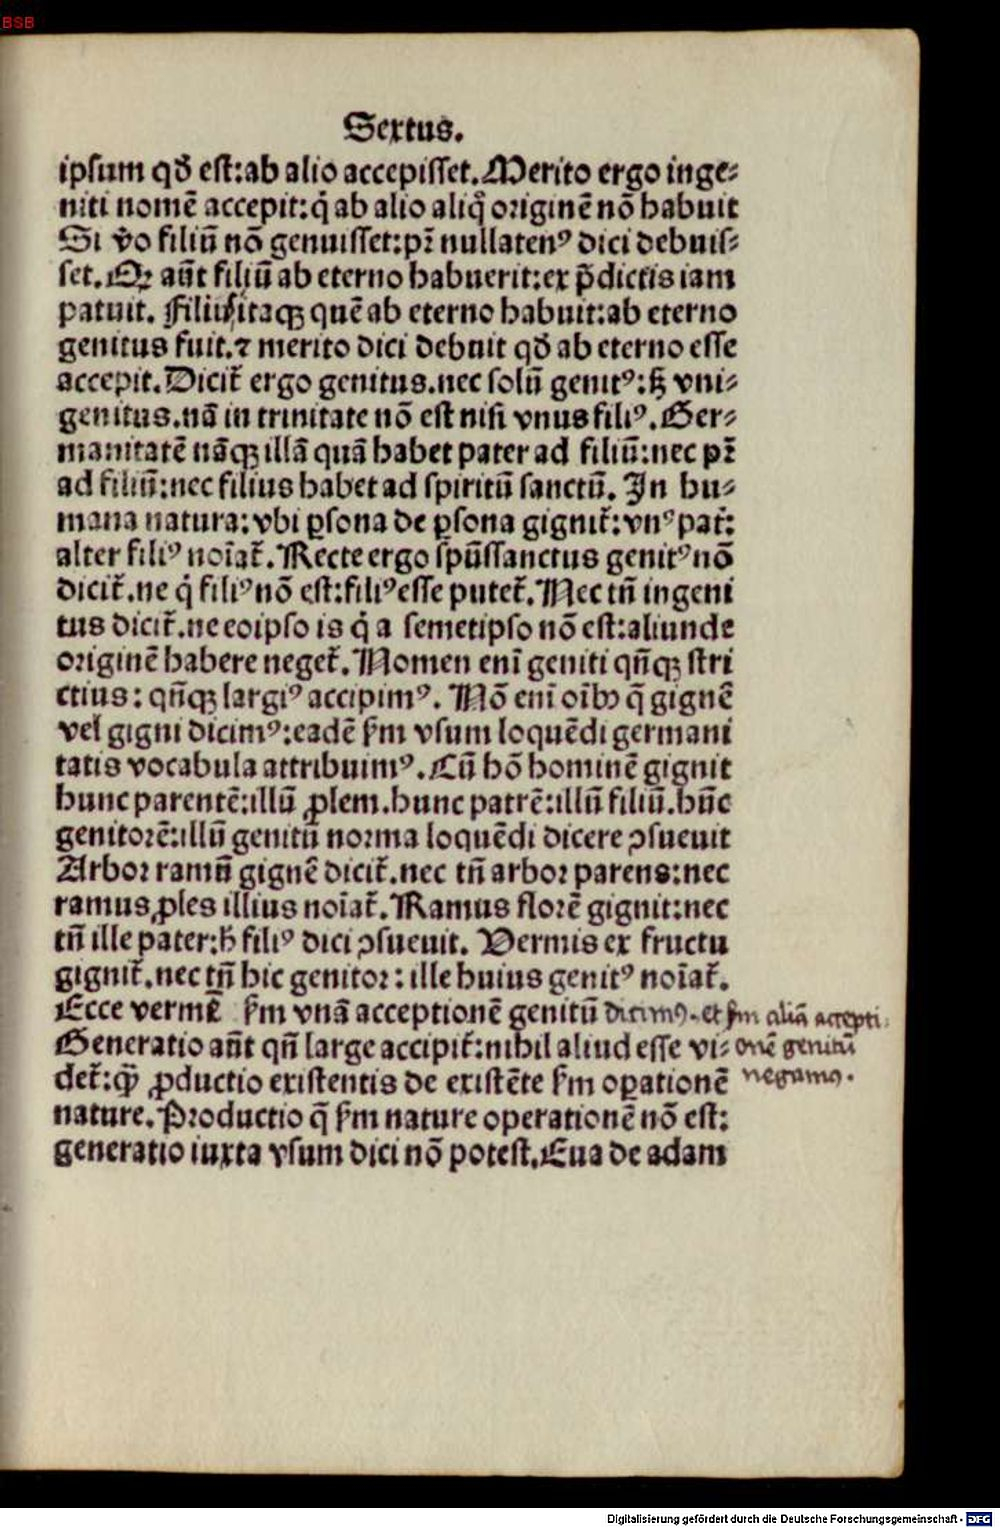 BSB
Sextus.
ipsum qđ est:ab alio accepisset. Merito ergo inge⸗
niti nomē accepit:q̇ ab alio aliq̇̄ originē nō habuit
Si v̊o filiū nō genuisset:pr̄ nullatenꝰ dici debuis⸗
set. Qꝛ aūt filiū ab eterno habuerit:ex p̄dictis iam
patuit. Filius itaqꝫ quē ab eterno habuit:ab eterno
genitus fuit.⁊ merito dici debuit qđ ab eterno esse
accepit. Dicit̄ ergo genitus.nec solū genitꝰ:sꝫ vni⸗
genitus.nā in trinitate nō est nisi vnus filiꝰ. Ger⸗
manitatē nāqꝫ illā quā habet pater ad filiū:nec pr̄
ad filiū:nec filius habet ad spiritū sanctū. In hu⸗
mana natura:vbi ꝑsona de ꝑsona gignit̄:vnꝰ pat̄:
alter filiꝰ noīat̄. Recte ergo spūssanctus genitꝰ nō
dicit̄.ne q̇ filiꝰ nō est:filiꝰ esse putet̄. Nec tn̄ ingeni
tus dicit̄.ne eoipso is q̇ a semetipso nō est:aliunde
originē habere neget̄. Nomen enī geniti qn̄qꝫ stri
ctius: qn̄qꝫ largiꝰ accipimꝰ. Nō enī oībꝫ q̄ gignē
vel gigni dicimꝰ:eadē ẜm vsum loquēdi germani
tatis vocabula attribuimꝰ. Cū hō hominē gignit
hunc parentē:illū ꝓlem.hunc patrē:illū filiū.hūc
genitorē:illū genitū norma loquēdi dicere ꝯsueuit
Arbor ramū gignē dicit̄.nec tn̄ arbor parens:nec
ramus ꝓles illius noīat̄. Ramus florē gignit:nec
tn̄ ille pater:ħ filiꝰ dici ꝯsueuit. Vermis ex fructu
gignit̄.nec tn̄ hic genitor: ille huius genitꝰ noīat̄.
Ecce vermē ẜm vnā acceptionē genitū dicimꝰ. et ẜm aliā accepti
Generatio aūt qn̄ large accipit̄:nihil aliud esse vi⸗ onē genitū
det̄:qꝫ̄ ꝓductio existentis de existēte ẜm oꝑationē negamꝰ.
nature. Productio q̄ ẜm nature operationē nō est:
generatio iuxta vsum dici nō potest. Eua de adam
Digitalisierung gefördert durch die Deutsche Forschungsgemeinschaft - DFG